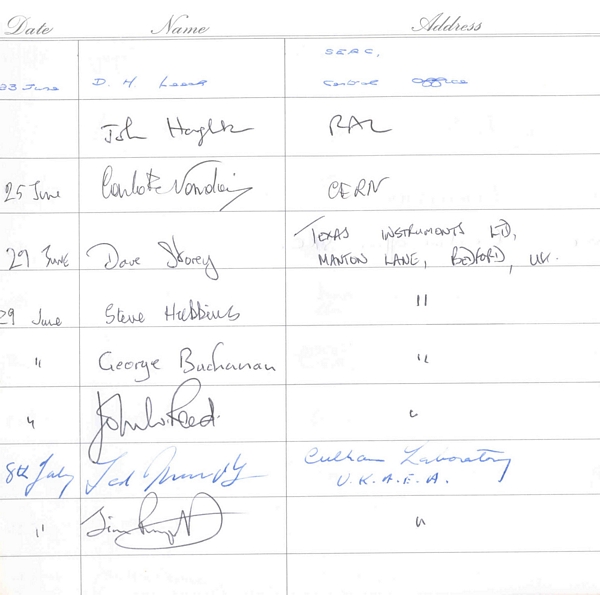 Date Name Address
SERC,
23 June D. H Central Office
John Houghton RAL
25 June Carlo CERN
29 June Dave Storey TEXAS INSTRUMENTS LTD,
MANTON LANE, BEDFORD, UK.
29 June Steve Hubbins "
" George Buchanan "
" John W. Reed "
8th July Ted Culham Laboratory
U.K.A.E.A.
" Jim "